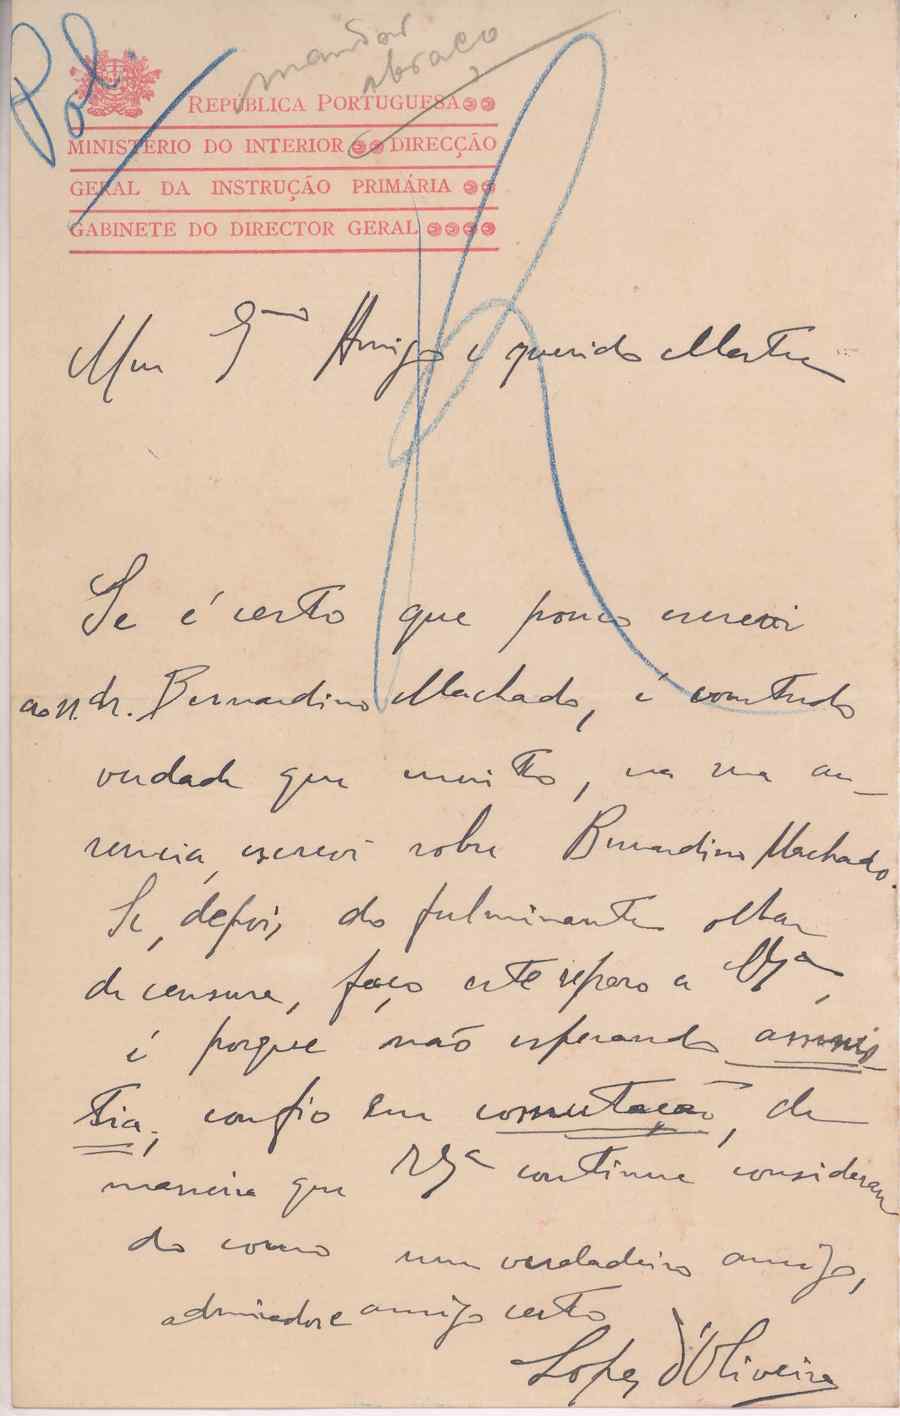 Pal.
mandar
abraço
REPÚBLICA PORTUGUESA
MINISTÉRIO DO INTERIOR DIRECÇÃO
GERAL DA INSTRUÇÃO PRIMÁRIA
GABINETE DO DIRECTOR GERAL
R
Meu Gde Amigo e querido Mestre
Se é certo que pouco escrevi
ao sr. dr. Bernardino Machado, é comtudo
verdade que muito, na sua au-
sencia, escrevi sobre Bernardino Machado.
Se, depois do fulminante olhar
de censura, faço este reparo a V. Exa,
é porque não esperando amnis
tia, confio em comutação, de
maneira que V. Exa continue consideran
do como um verdadeiro amigo,
admirador e amigo certo
Lopes d'Oliveira